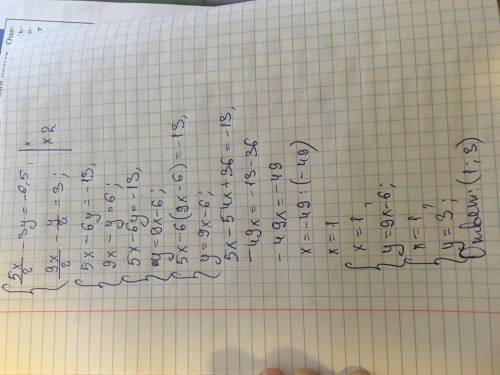 { 5x/2 - 3y = -6,5, | x
{ 9x/2 - y/2 = 3; | x2
{ 5x - 6y = -13,
{ 9x - y = 6;
{ 5x - 6y = -13,
{ y = 9x - 6;
{ 5x - 6(9x - 6) = -13,
{ y = 9x - 6;
5x - 54x + 36 = -13,
-49x = -13 - 36
-49x = -49
x = -49 : (-49)
x = 1
{ x = 1,
{ y = 9x - 6;
{ x = 1,
{ y = 3;
Ответ: (1; 3)